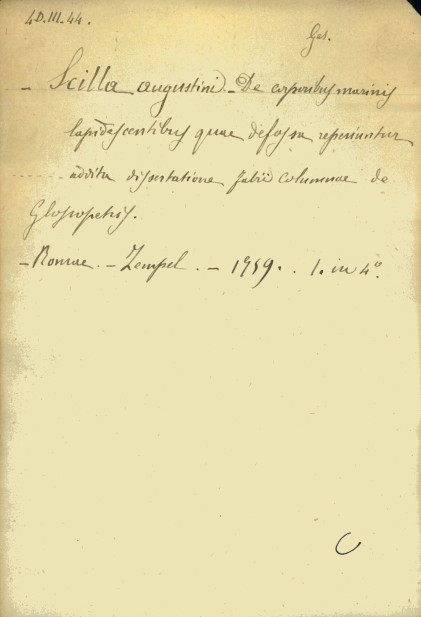 4D.III.44.
Ges.
- Scilla augustini. - De corporibus marinis
lapidescentibus quae defossa reperiuntur
addita dissertatione fabii columnae de
Glossopetris.
- Romae. - Zempel. - 1759. . 1. in 4°.
C